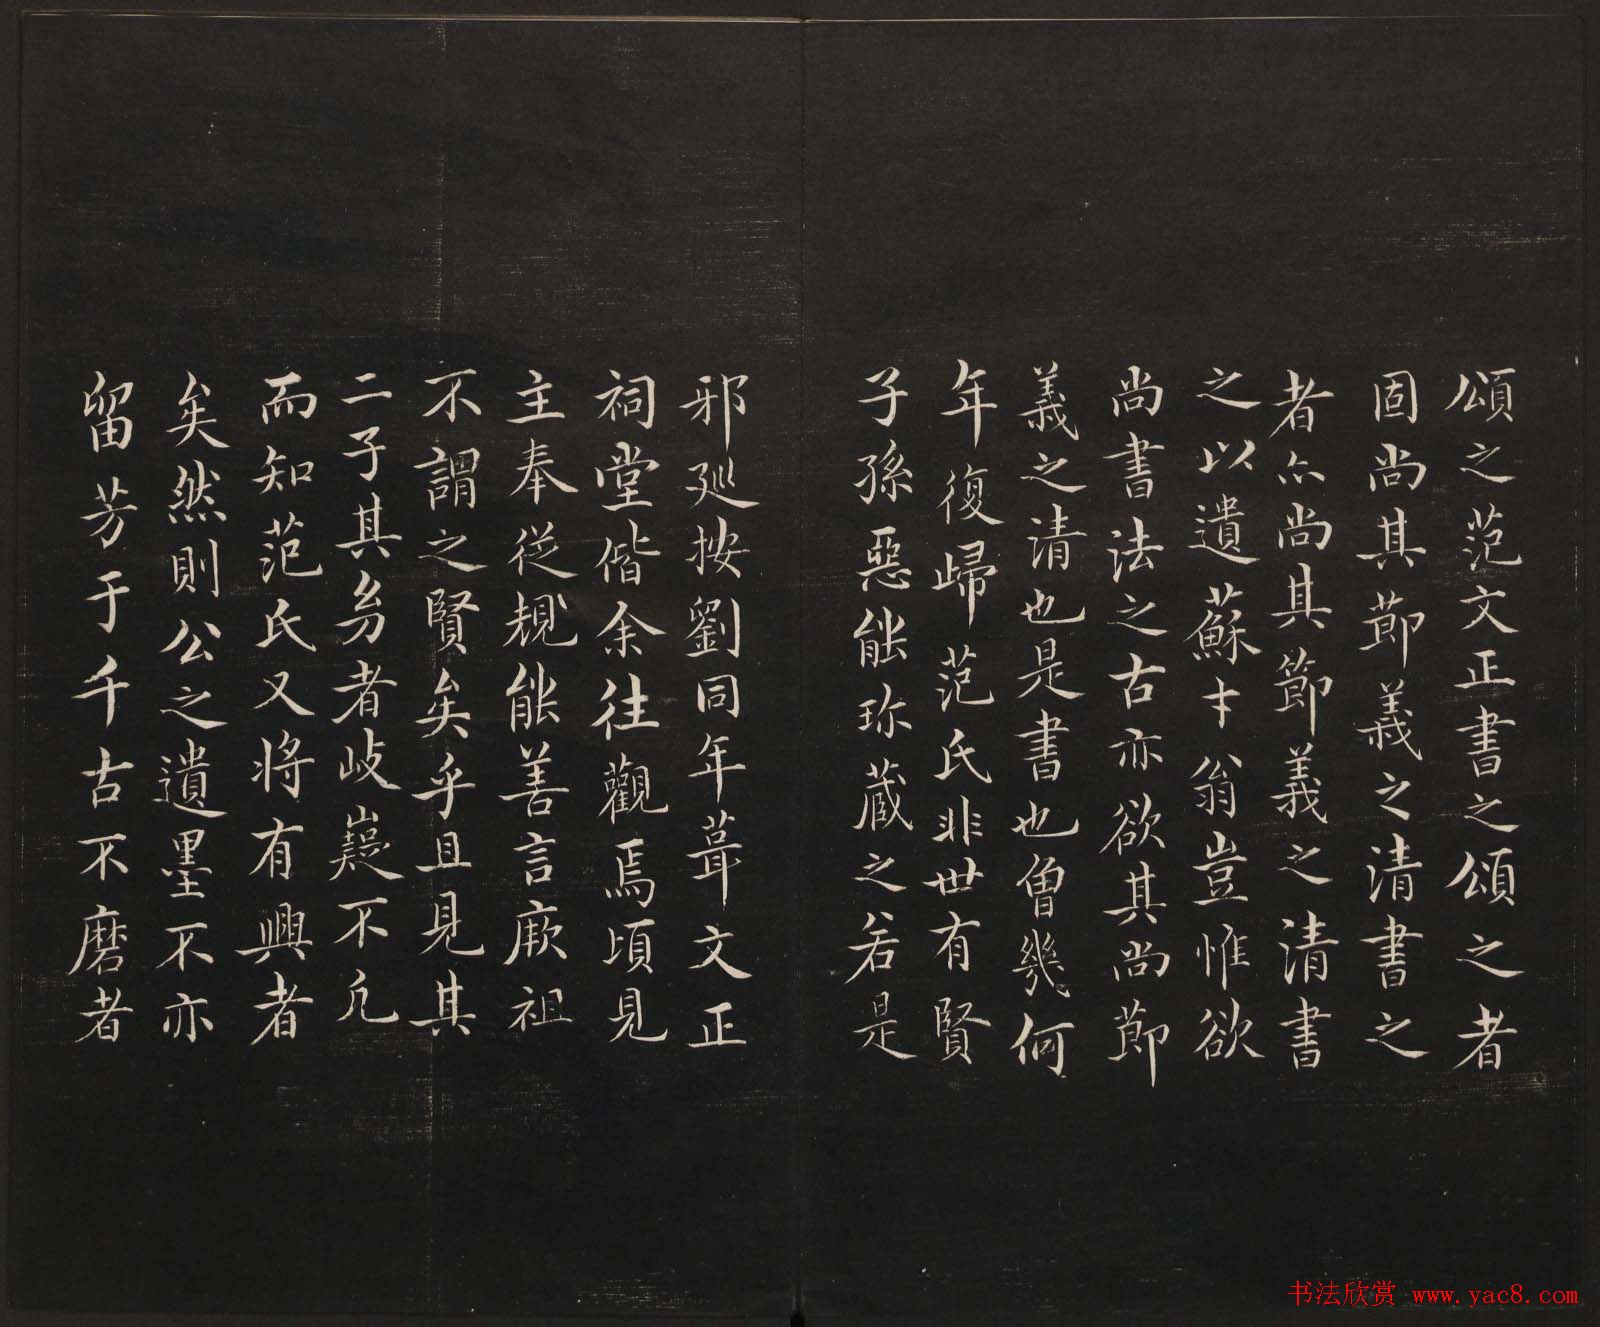 頌之范文正書之頌之者
固尚其節義之清書之
者亦尚其節義之清書
之以遺蘇才翁豈惟欲
尚書法之古亦欲其尚節
義之清也是書也曾幾何
年復歸范氏非世有賢
子孫惡能珎蔵之若是
邪廵按劉同年葺文正
祠堂偕余往觀焉頃見
主奉從規能善言厥祖
不謂之賢矣乎且見其
二子其幼者岐嶷不凡
而知范氏又将有興者
矣然則公之遺墨不亦
留芳于千古不磨者
书法欣赏 www.yac8.com